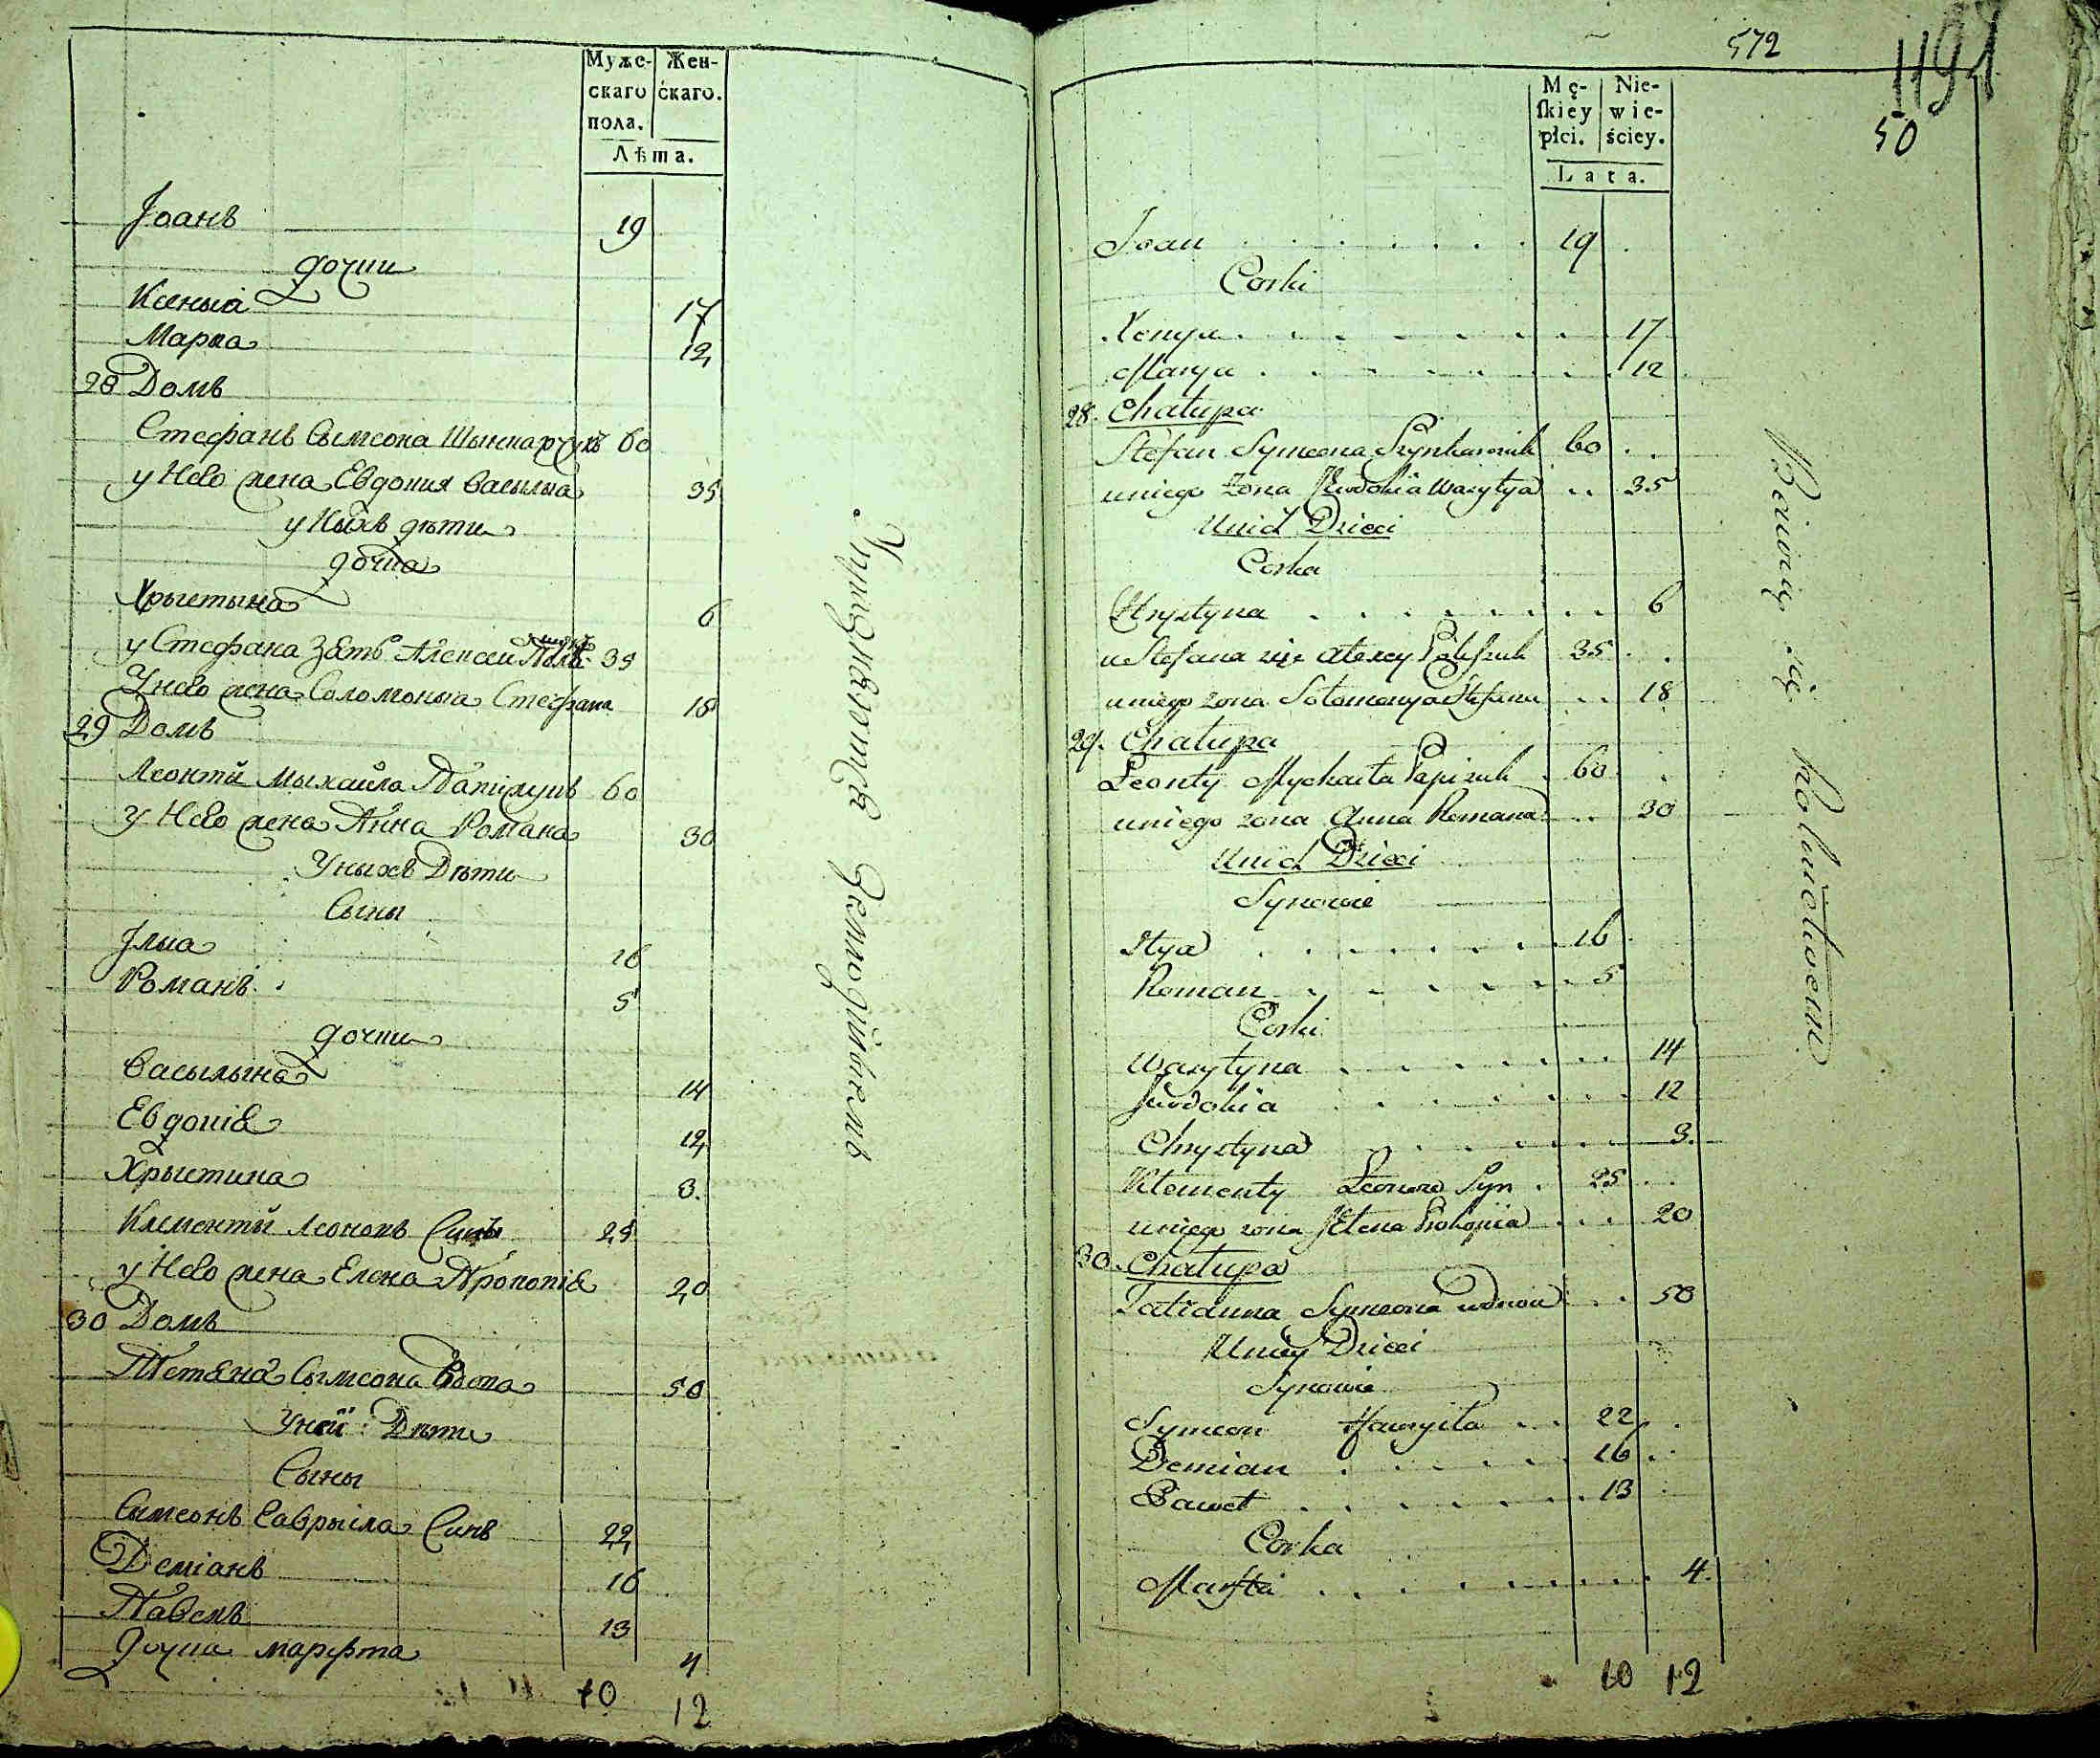 Муже- Жен-
скаго скаго.
пола.
Лѣта.
Јоанъ 19
дочки
Ксеныя 17
Марыа 12
28 Домъ
Стефанъ Сымеона Шынкарчукъ 60
у Нево жена Евдокия Васылыа 35
у Ныхъ дѣти
дочка
Хрыстына 6
у Стефана Зять Алексей 35
У нево жена Соломоныа Стефана 18
29 Домъ
Леонтий Мыхайла Папіжукъ 60
У Нево жена Анна Романа 30
У ныхъ Дѣти
Сыны
Јлыа 16
Романъ 5
дочки
Васылына 14
Евдокія 12
Хрыстина 3.
Клементий Леоновъ Сынъ 25
у Нево жена Елена Прокопія 20
30 Домъ
Тетяна Сымеона Вдова 50
У ней Дѣти
Сыны
Сымеонъ Гаврыіла Синъ 22
Деміанъ 16
Павелъ 13
Дочка марфта 4
10 12
572
1191
50
Mę- Nie-
ſkiey wie-
płci. ściey.
Lata.
Joan 19
Corki
Xenya 17
Marya 12
28. Chałupa
Stefan Symeona Szynkarczuk 60
uniego żona Jewdokia Wasylya 35
Unich Dzieci
Corka
Chrystyna 6
u Stefana zięć Alexey 35
uniego zona Sołomonya Stefana 18
29. Chałupa
Leonty Mychaiła Papizuk 60
uniego zona Anna Romana 30
Unich Dzieci
Synowie
Ilya 16
Roman 5
Corki
Wasylyna 14
Jewdokia 12
Chrystyna 3.
Klementy Leonow Syn 25
uniego zona Jelena Prokopia 20
30. Chałupa
Tatianna Symeona wdowa 50
Uniey Dzieci
Synowie
Symeon Hawryiła 22
Demian 16
Paweł 13
Corka
Marfta 4.
10 12